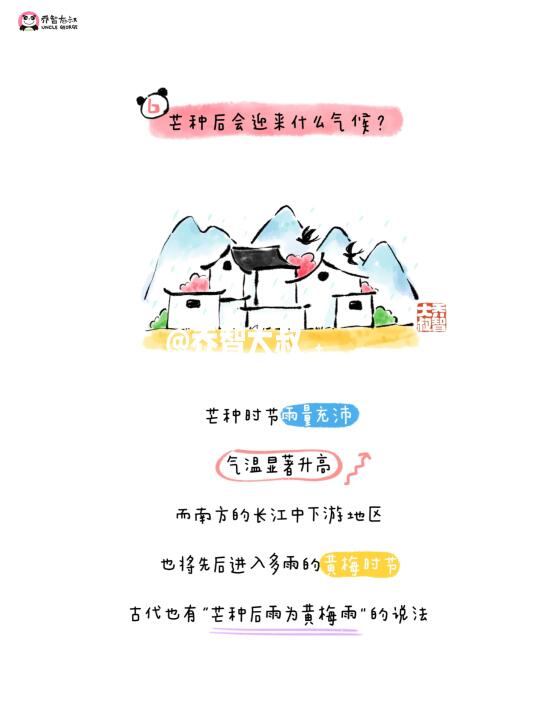 乔智大叔
UNCLE GEORGE
6
芒种后会迎来什么气候？
乔智大叔
@乔智大叔
芒种时节雨量充沛
气温显著升高
而南方的长江中下游地区
也将先后进入多雨的黄梅时节
古代也有“芒种后雨为黄梅雨”的说法